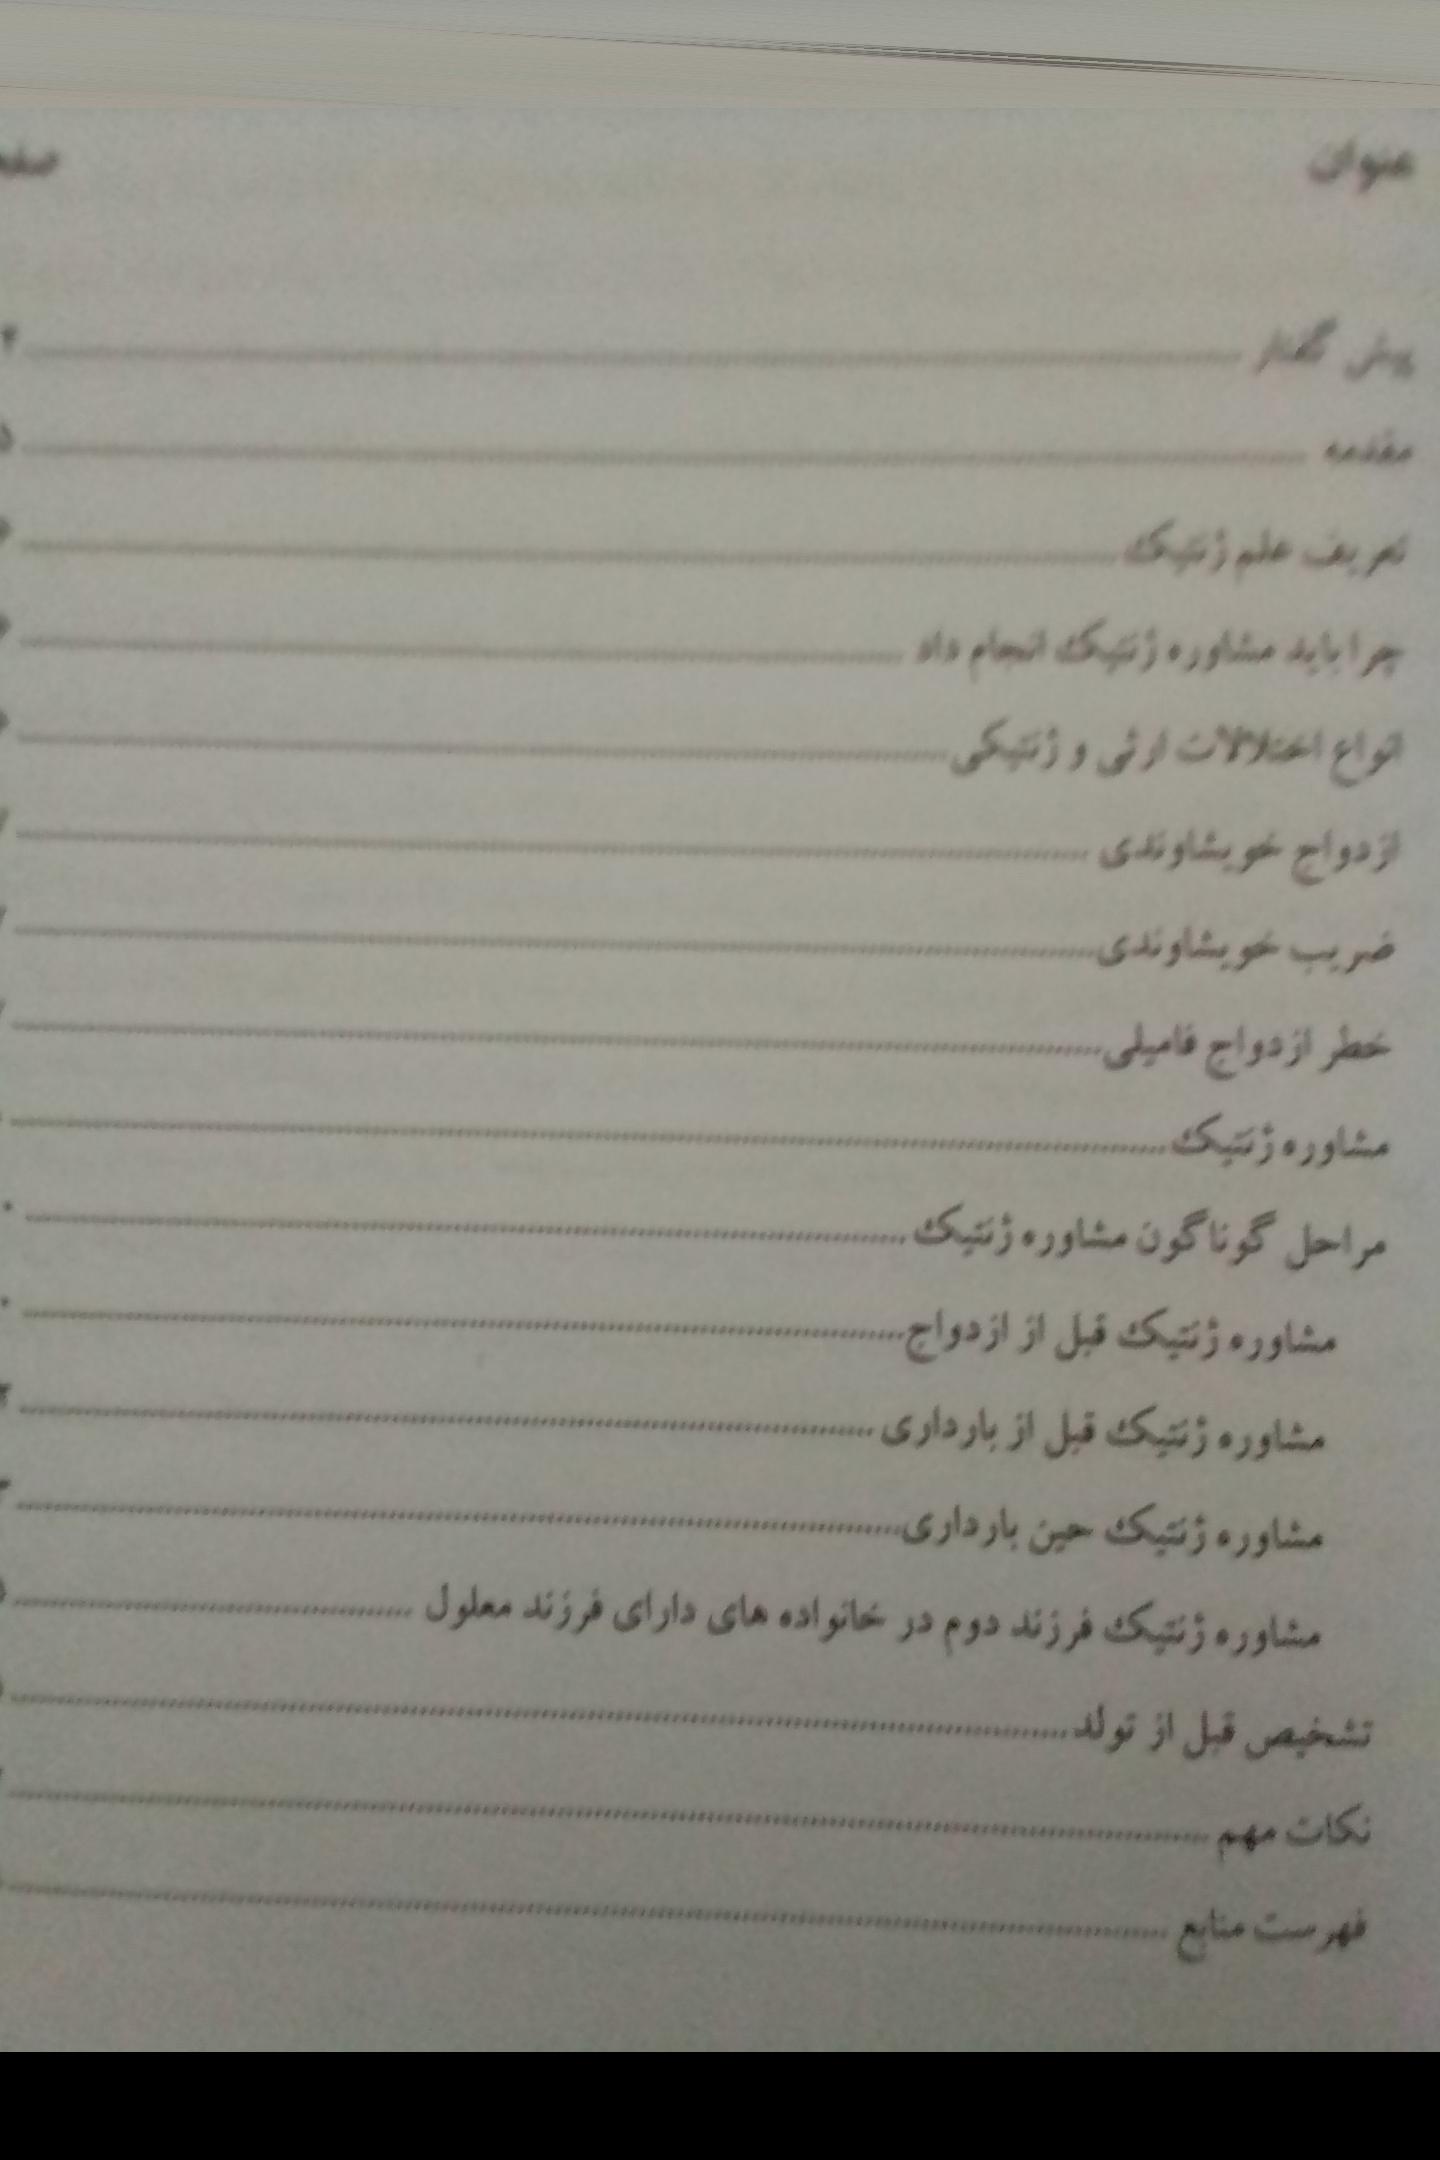 عنوان
پیش گفتار
مقدمه
تعریف علم ژنتیک
چرا باید مشاوره ژنتیک انجام داد
انواع اختلالات ارثی و ژنتیکی
ازدواج خویشاوندی
ضریب خویشاوندی
خطر ازدواج فامیلی
مشاوره ژنتیک
مراحل گوناگون مشاوره ژنتیک
مشاوره ژنتیک قبل از ازدواج
مشاوره ژنتیک قبل از بارداری
مشاوره ژنتیک حین بارداری
مشاوره ژنتیک فرزند دوم در خانواده های دارای فرزند معلول
تشخیص قبل از تولد
نکات مهم
فهرست منابع